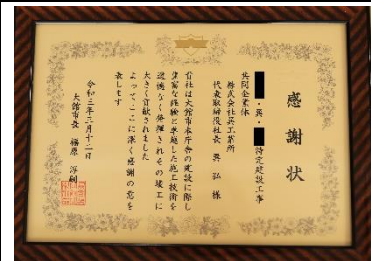 感謝状
・呉・特定建設工事
共同企業体
株式会社呉工業所
代表取締役社長 呉 弘 様
貴社は大館市本庁舎の建設に際し
豊富な経験と卓越した施工技術を
遺憾なく発揮されその竣工に
大きく貢献されました
よってここに深く感謝の意を
表します
令和三年二月十二日
大館市長 福原 淳嗣